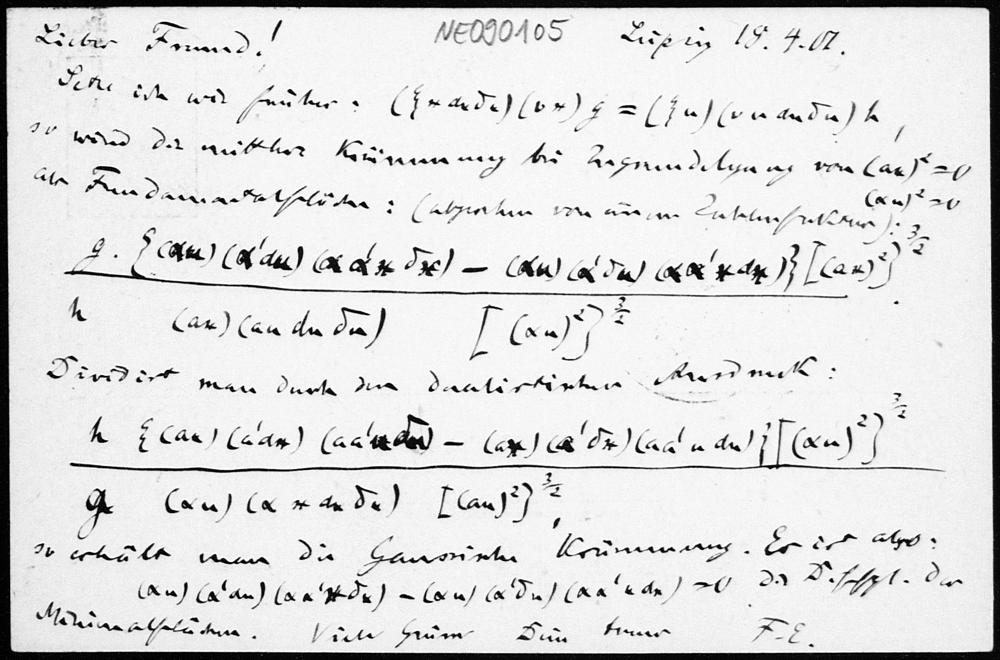 NE090105
Lieber Freund! Leipzig 18. 4. 01.
Setze ich wie früher: (ξ x dx δx) (v x) g = (ξ u) (v u du δu) h,
so wird die mittlere Krümmung bei Zugrundelegung von (ax)² = 0
(αu)² = 0
als Fundamentalflächen: (abgesehen von einem Zahlenfaktor):
g. {(αu) (α'du) (α α' x δx) − (αu) (α'δu) (α α' x dx)} [(ax)²]^{3/2}
h (ax) (a u du δu) [(αu)²]^{3/2}
Dividirt man durch den dualistischen Ausdruck:
h {(ax) (a'dx) (a a' u δu) − (ax) (a'δx) (a a' u du)} [(αu)²]^{3/2}
g (αu) (α x dx δx) [(ax)²]^{3/2},
so erhält man die Gaussische Krümmung. Es ist also:
(αu) (α'du) (α α' x δx) − (αu) (α'δu) (α α' x dx) = 0 die Diffgl. der
Minimalflächen. Viele Grüsse Dein treuer F. E.